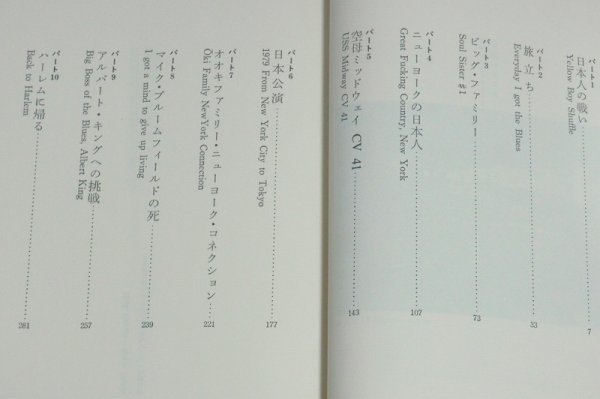 パート1
日本人の戦い
Yellow Boy Shuffle
7
パート2
旅立ち
Everyday I got the Blues
33
パート3
ビッグ・ファミリー
Soul Sister #1
73
パート4
ニューヨークの日本人
Great Fucking Country, New York
107
パート5
空母ミッドウェイ CV 41
USS Midway CV 41
143
パート6
日本公演
1979 From New York City to Tokyo
177
パート7
オオキファミリー・ニューヨーク・コネクション
Ōki Family NewYork Connection
221
パート8
マイク・ブルームフィールドの死
I got a mind to give up living
239
パート9
アルバート・キングへの挑戦
Big Boss of the Blues, Albert King
257
パート10
ハーレムに帰る
Back to Harlem
281